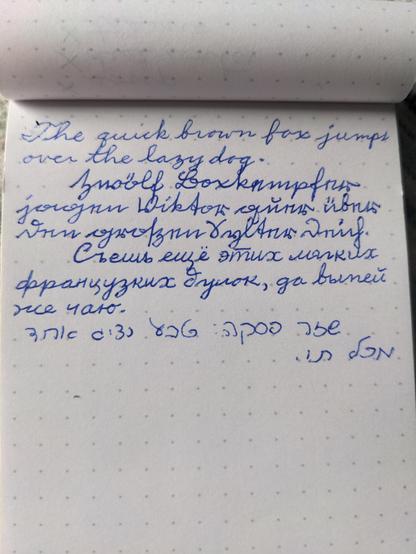 The quick brown fox jumps
over the lazy dog.
Zwölf Boxkempfer
jagen Wiktor quer über
den großen Sylter Deich.
Съешь ещё этих мягких
французких булок, да выпей
же чаю.
שזר פסקה: טבע נציג אחד
מכל תו.